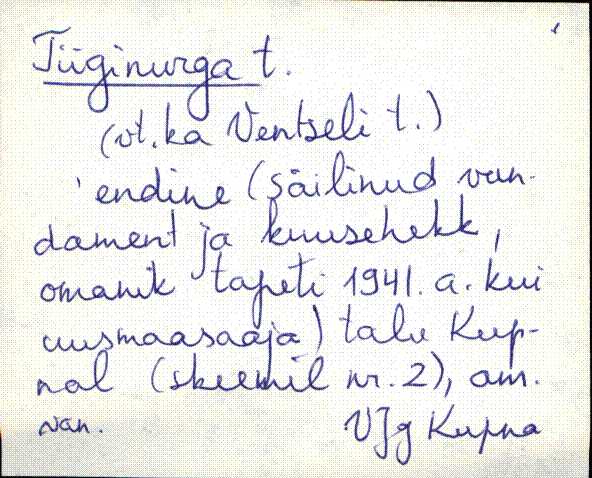 Tiiginurga t.
(vt. ka Ventseli t.)
endine (säilinud vun-
dament ja kuusehekk,
omanik tapeti 1941. a. kui
uusmaasaaja) talu Kup-
nal (skeemil nr. 2), am.
van. VJg Kupna